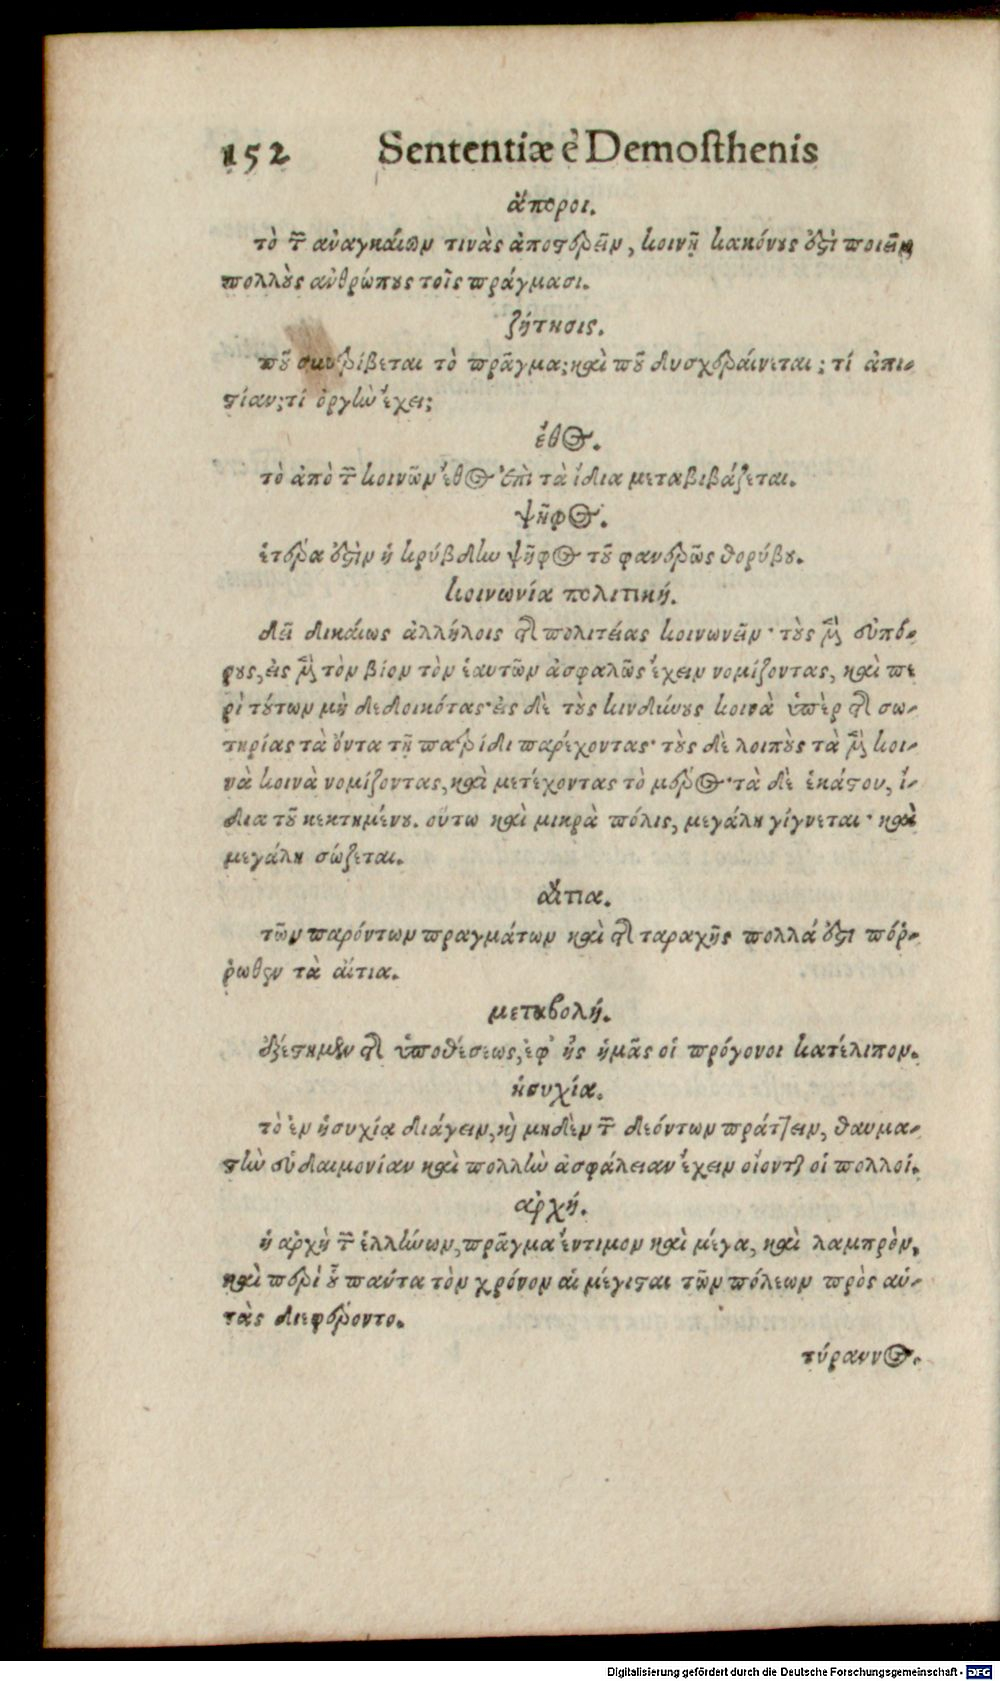 152 Sententiæ è Demoſthenis
ἄποροι.
τὸ τῶν ἀναγκαίων τινὰς ἀποστερεῖν, κοινῇ κακόνους ἐστὶ ποιεῖν
πολλοὺς ἀνθρώπους τοῖς πράγμασι.
ζήτησις.
ποῦ συντρίβεται τὸ πρᾶγμα; καὶ ποῦ δυσχεραίνεται; τί ἀπι-
στίαν; τί ὀργὴν ἔχει;
ἔθος.
τὸ ἀπὸ τῶν κοινῶν ἔθος ἐπὶ τὰ ἴδια μεταβιβάζεται.
ψῆφος.
ἑτέρα ἐστὶν ἡ κρύβδην ψῆφος τοῦ φανερῶς θορύβου.
κοινωνία πολιτική.
δεῖ δικαίως ἀλλήλοις τῆς πολιτείας κοινωνεῖν· τοὺς μὲν εὐπό-
ρους, εἰς μὲν τὸν βίον τὸν ἑαυτῶν ἀσφαλῶς ἔχειν νομίζοντας, καὶ πε
ρὶ τούτων μὴ δεδοικότας· εἰς δὲ τοὺς κινδύνους κοινὰ ὑπὲρ τῆς σω-
τηρίας τὰ ὄντα τῇ πατρίδι παρέχοντας· τοὺς δὲ λοιποὺς τὰ μὲν κοι-
νὰ κοινὰ νομίζοντας, καὶ μετέχοντας τὸ μέρος· τὰ δὲ ἑκάστου, ἴ-
δια τοῦ κεκτημένου. οὕτω καὶ μικρὰ πόλις, μεγάλη γίγνεται· καὶ
μεγάλη σώζεται.
αἴτια.
τῶν παρόντων πραγμάτων καὶ τῆς ταραχῆς πολλά ἐστι πόῤ-
ῥωθεν τὰ αἴτια.
μεταβολή.
ἐξέστημεν τῆς ὑποθέσεως, ἐφ' ἧς ἡμᾶς οἱ πρόγονοι κατέλιπον.
ἡσυχία.
τὸ ἐν ἡσυχίᾳ διάγειν, καὶ μηδὲν τῶν δεόντων πράττειν, θαυμα-
στὴν εὐδαιμονίαν καὶ πολλὴν ἀσφάλειαν ἔχειν οἴονται οἱ πολλοί.
ἀρχή.
ἡ ἀρχὴ τῶν ἑλλήνων, πρᾶγμα ἔντιμον καὶ μέγα, καὶ λαμπρὸν,
καὶ περὶ οὗ πάντα τὸν χρόνον αἱ μέγισται τῶν πόλεων πρὸς αὑ-
τὰς διεφέροντο.
τύραννος.
Digitalisierung gefördert durch die Deutsche Forschungsgemeinschaft - DFG